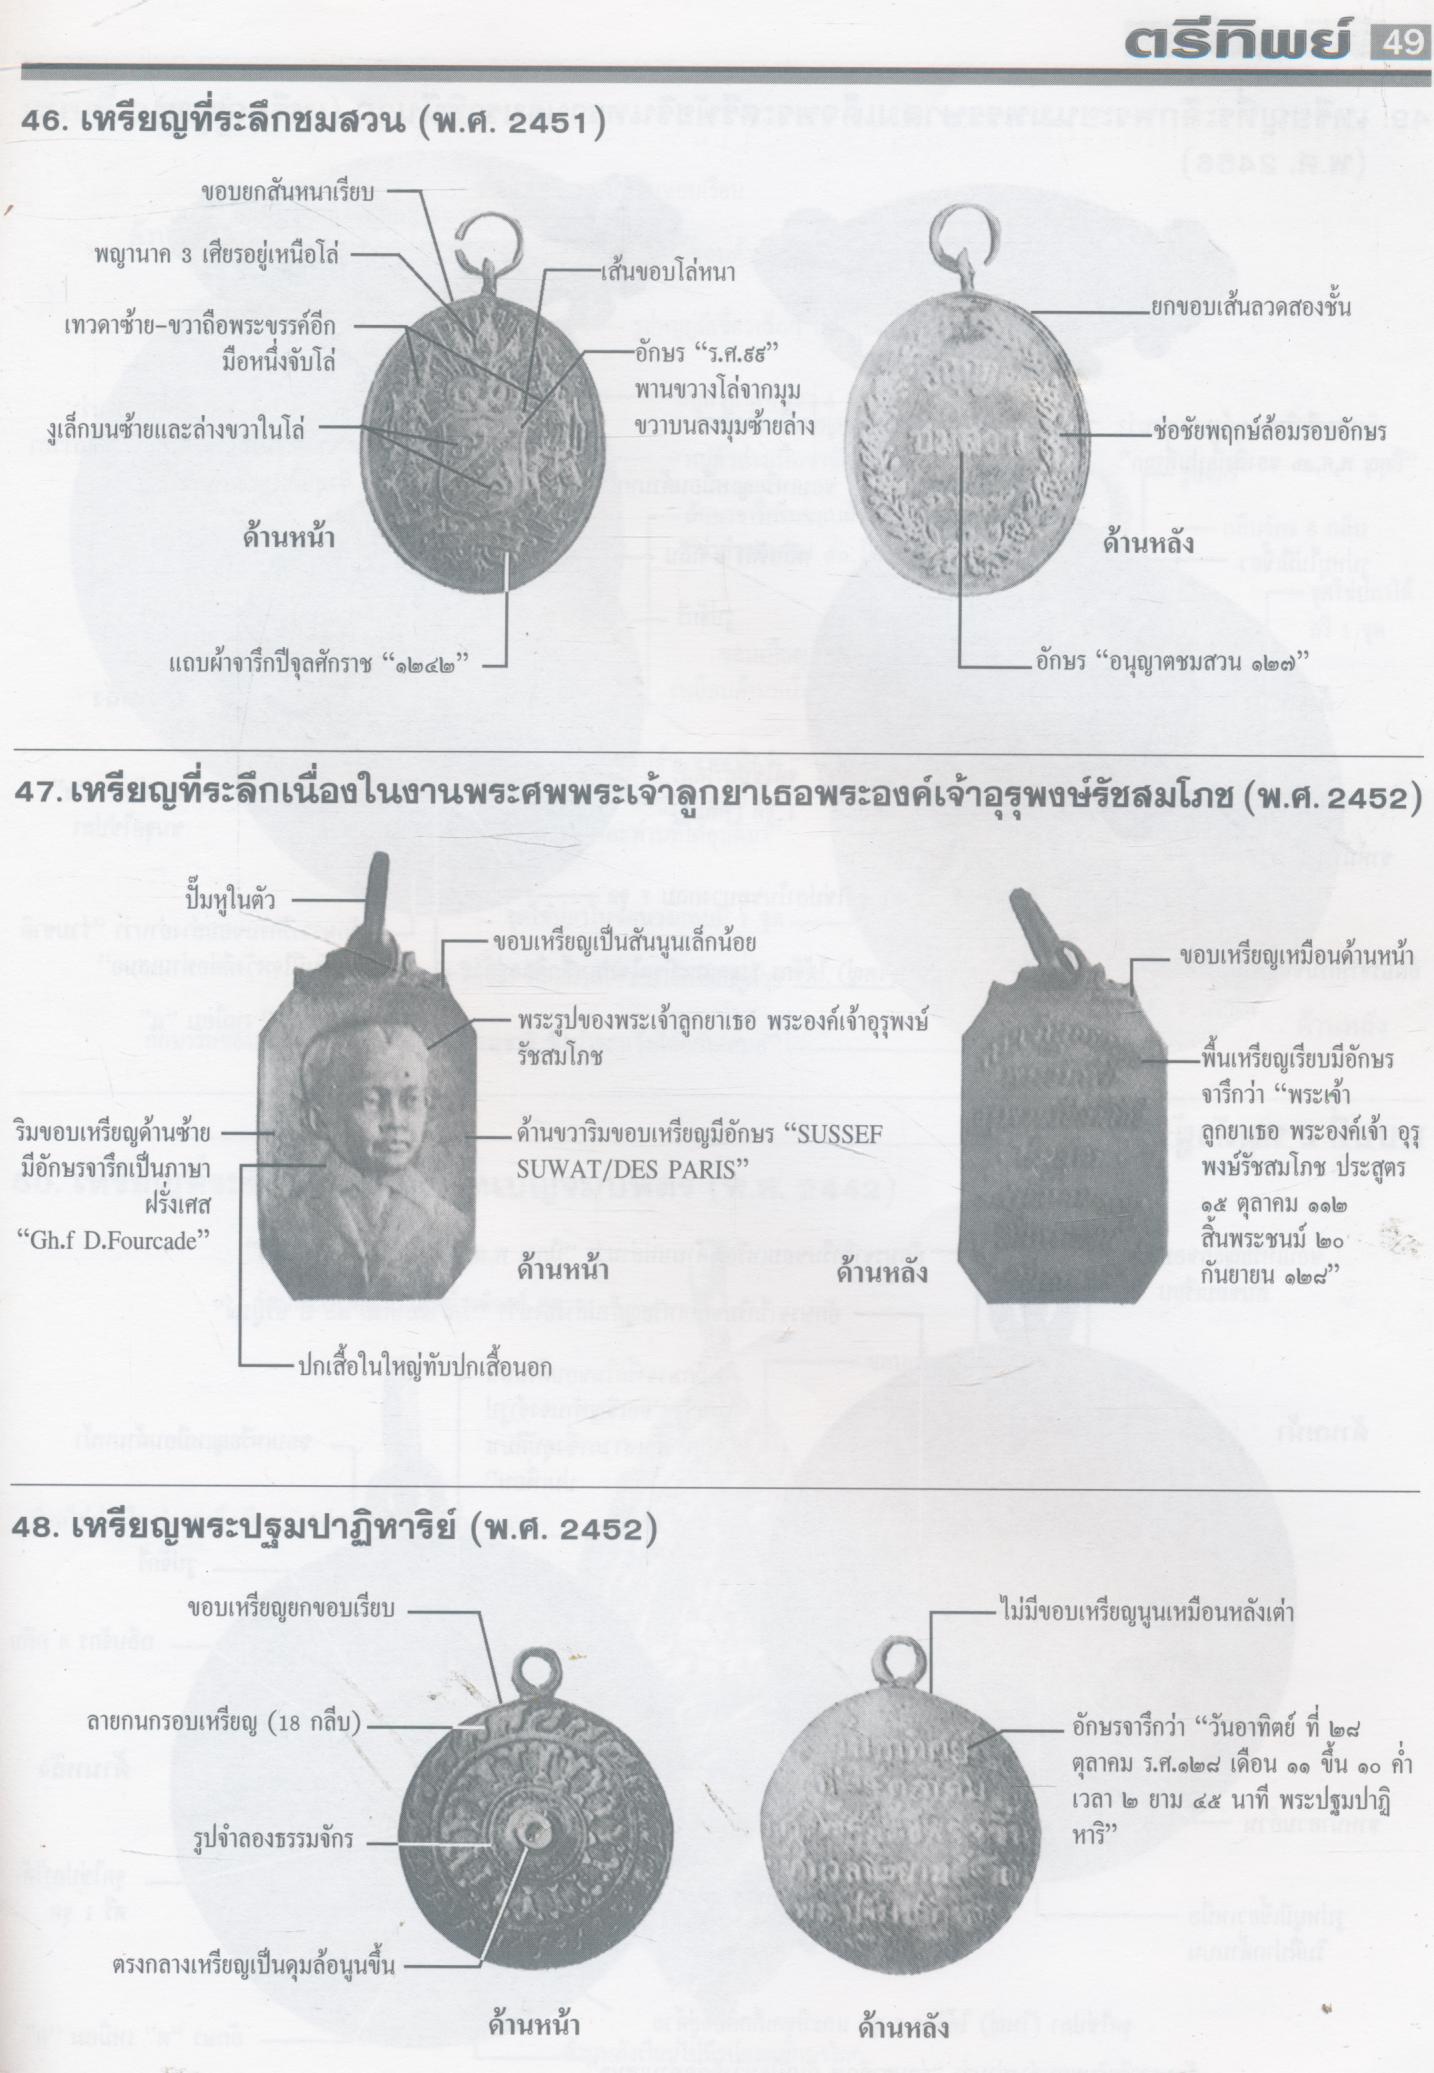 ตรีทิพย์ 49
46. เหรียญที่ระลึกชมสวน (พ.ศ. 2451)
ขอบยกสันหนาเรียบ
พญานาค 3 เศียรอยู่เหนือโล่
เทวดาซ้าย-ขวาถือพระขรรค์อีก
มือหนึ่งจับโล่
งูเล็กบนซ้ายและล่างขวาในโล่
เส้นขอบโล่หนา
อักษร “ร.ศ.๙๙”
พานขวางโล่จากมุม
ขวาบนลงมุมซ้ายล่าง
ด้านหน้า
แถบผ้าจารึกปีจุลศักราช “๑๒๔๒”
ยกขอบเส้นลวดสองชั้น
ช่อชัยพฤกษ์ล้อมรอบอักษร
ชมสวน
ด้านหลัง
อักษร “อนุญาตชมสวน ๑๒๗”
47. เหรียญที่ระลึกเนื่องในงานพระศพพระเจ้าลูกยาเธอพระองค์เจ้าอุรุพงษ์รัชสมโภช (พ.ศ. 2452)
ปั๊มหูในตัว
ขอบเหรียญเป็นสันนูนเล็กน้อย
พระรูปของพระเจ้าลูกยาเธอ พระองค์เจ้าอุรุพงษ์
รัชสมโภช
ริมขอบเหรียญด้านซ้าย
มีอักษรจารึกเป็นภาษา
ฝรั่งเศส
“Gh.f D.Fourcade”
ด้านขวาริมขอบเหรียญมีอักษร “SUSSEF
SUWAT/DES PARIS”
ด้านหน้า
ปกเสื้อในใหญ่ทับปกเสื้อนอก
ขอบเหรียญเหมือนด้านหน้า
พื้นเหรียญเรียบมีอักษร
จารึกว่า “พระเจ้า
ลูกยาเธอ พระองค์เจ้า อุรุ
พงษ์รัชสมโภช ประสูตร
๑๕ ตุลาคม ๑๑๒
สิ้นพระชนม์ ๒๐
กันยายน ๑๒๘”
ด้านหลัง
48. เหรียญพระปฐมปาฏิหาริย์ (พ.ศ. 2452)
ขอบเหรียญยกขอบเรียบ
ลายกนกรอบเหรียญ (18 กลีบ)
รูปจำลองธรรมจักร
ตรงกลางเหรียญเป็นดุมล้อนูนขึ้น
ด้านหน้า
ไม่มีขอบเหรียญนูนเหมือนหลังเต่า
อักษรจารึกว่า “วันอาทิตย์ ที่ ๒๘
ตุลาคม ร.ศ.๑๒๘ เดือน ๑๑ ขึ้น ๑๐ ค่ำ
เวลา ๒ ยาม ๔๕ นาที พระปฐมปาฏิ
หาริ”
ด้านหลัง